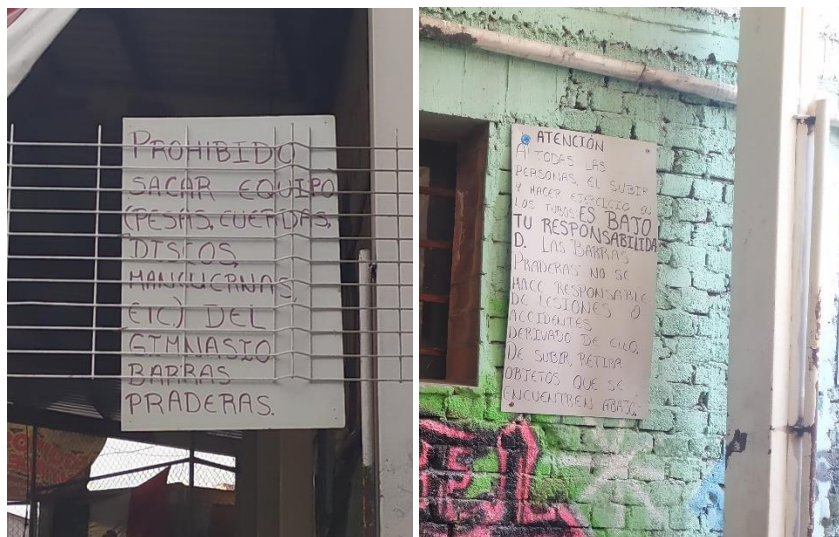 PROHIBIDO
SACAR EQUIPO
(PESAS, CUERDAS,
DISCOS,
MANCUERNAS,
ETC) DEL
GIMNASIO
BARRAS
PRADERAS.
ATENCIÓN
A TODAS LAS
PERSONAS, EL SUBIR
Y HACER EJERCICIO EN
LOS TUBOS ES BAJO
TU RESPONSABILIDA
D. LAS BARRAS
PRADERAS NO SE
HACE RESPONSABLE
DE LESIONES O
ACCIDENTES
DERIVADO DE ELLO.
DE SUBIR, RETIRA
OBJETOS QUE SE
ENCUENTREN ABAJO.